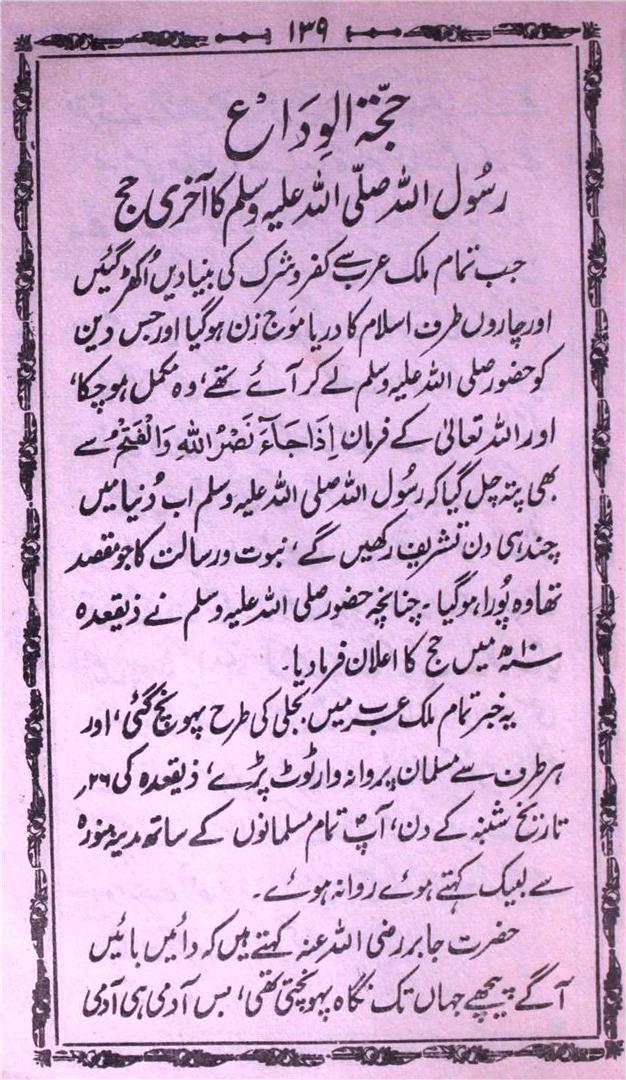 ۱۳۹
حجّۃ الوِدَاع
رسُول اللہ صلّی اللہ علیہ وسلم کا آخری حج
جب تمام ملک عرب سے کفر و شرک کی بنیادیں اُکھڑ گئیں
اور چاروں طرف اسلام کا دریا موَج زن ہوگیا اور جس دین
کو حضور صلی اللہ علیہ وسلم لے کر آئے تھے، وہ مکمل ہوچکا،
اور اللہ تعالیٰ کے فرمان اِذَا جَآءَ نَصْرُ اللہِ وَالْفَتْحُ سے
بھی پتہ چل گیا کہ رسُول اللہ صلی اللہ علیہ وسلم اب دُنیا میں
چند ہی دن تشریف رکھیں گے، نبوت و رسالت کا جو مقصد
تھا وہ پُورا ہوگیا۔ چنانچہ حضور صلی اللہ علیہ وسلم نے ذیقعدہ
سنہ ۱۰ھ میں حج کا اعلان فرما دیا۔
یہ خبر تمام ملک عرب میں بجلی کی طرح پہونچ گئی، اور
ہر طرف سے مسلمان پروانہ وار ٹوٹ پڑے، ذیقعدہ کی ۲۶؍
تاریخ شنبہ کے دن، آپؐ تمام مسلمانوں کے ساتھ مدینہ منورہ
سے لبیک کہتے ہوئے روانہ ہوئے۔
حضرت جابر رضی اللہ عنہ کہتے ہیں کہ دائیں بائیں
آگے پیچھے جہاں تک نگاہ پہونچتی تھی، بس آدمی ہی آدمی